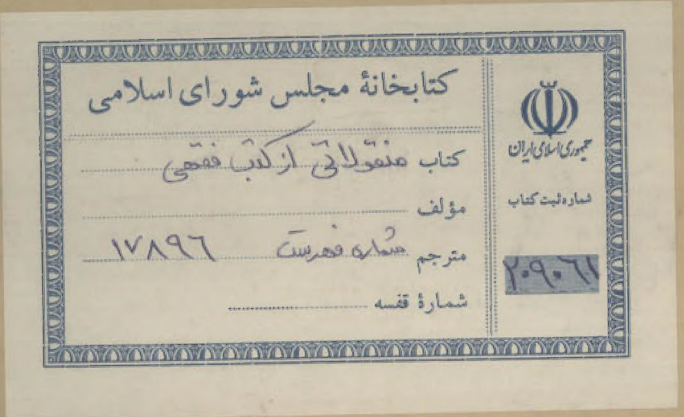 کتابخانهٔ مجلس شورای اسلامی
کتاب منقولاتی از کتب فقهی
مؤلف
مترجم شماره فهرست ۱۷۸۹۶
شمارهٔ قفسه
جمهوری اسلامی ایران
شماره ثبت کتاب
۲۰۹۰۶۱